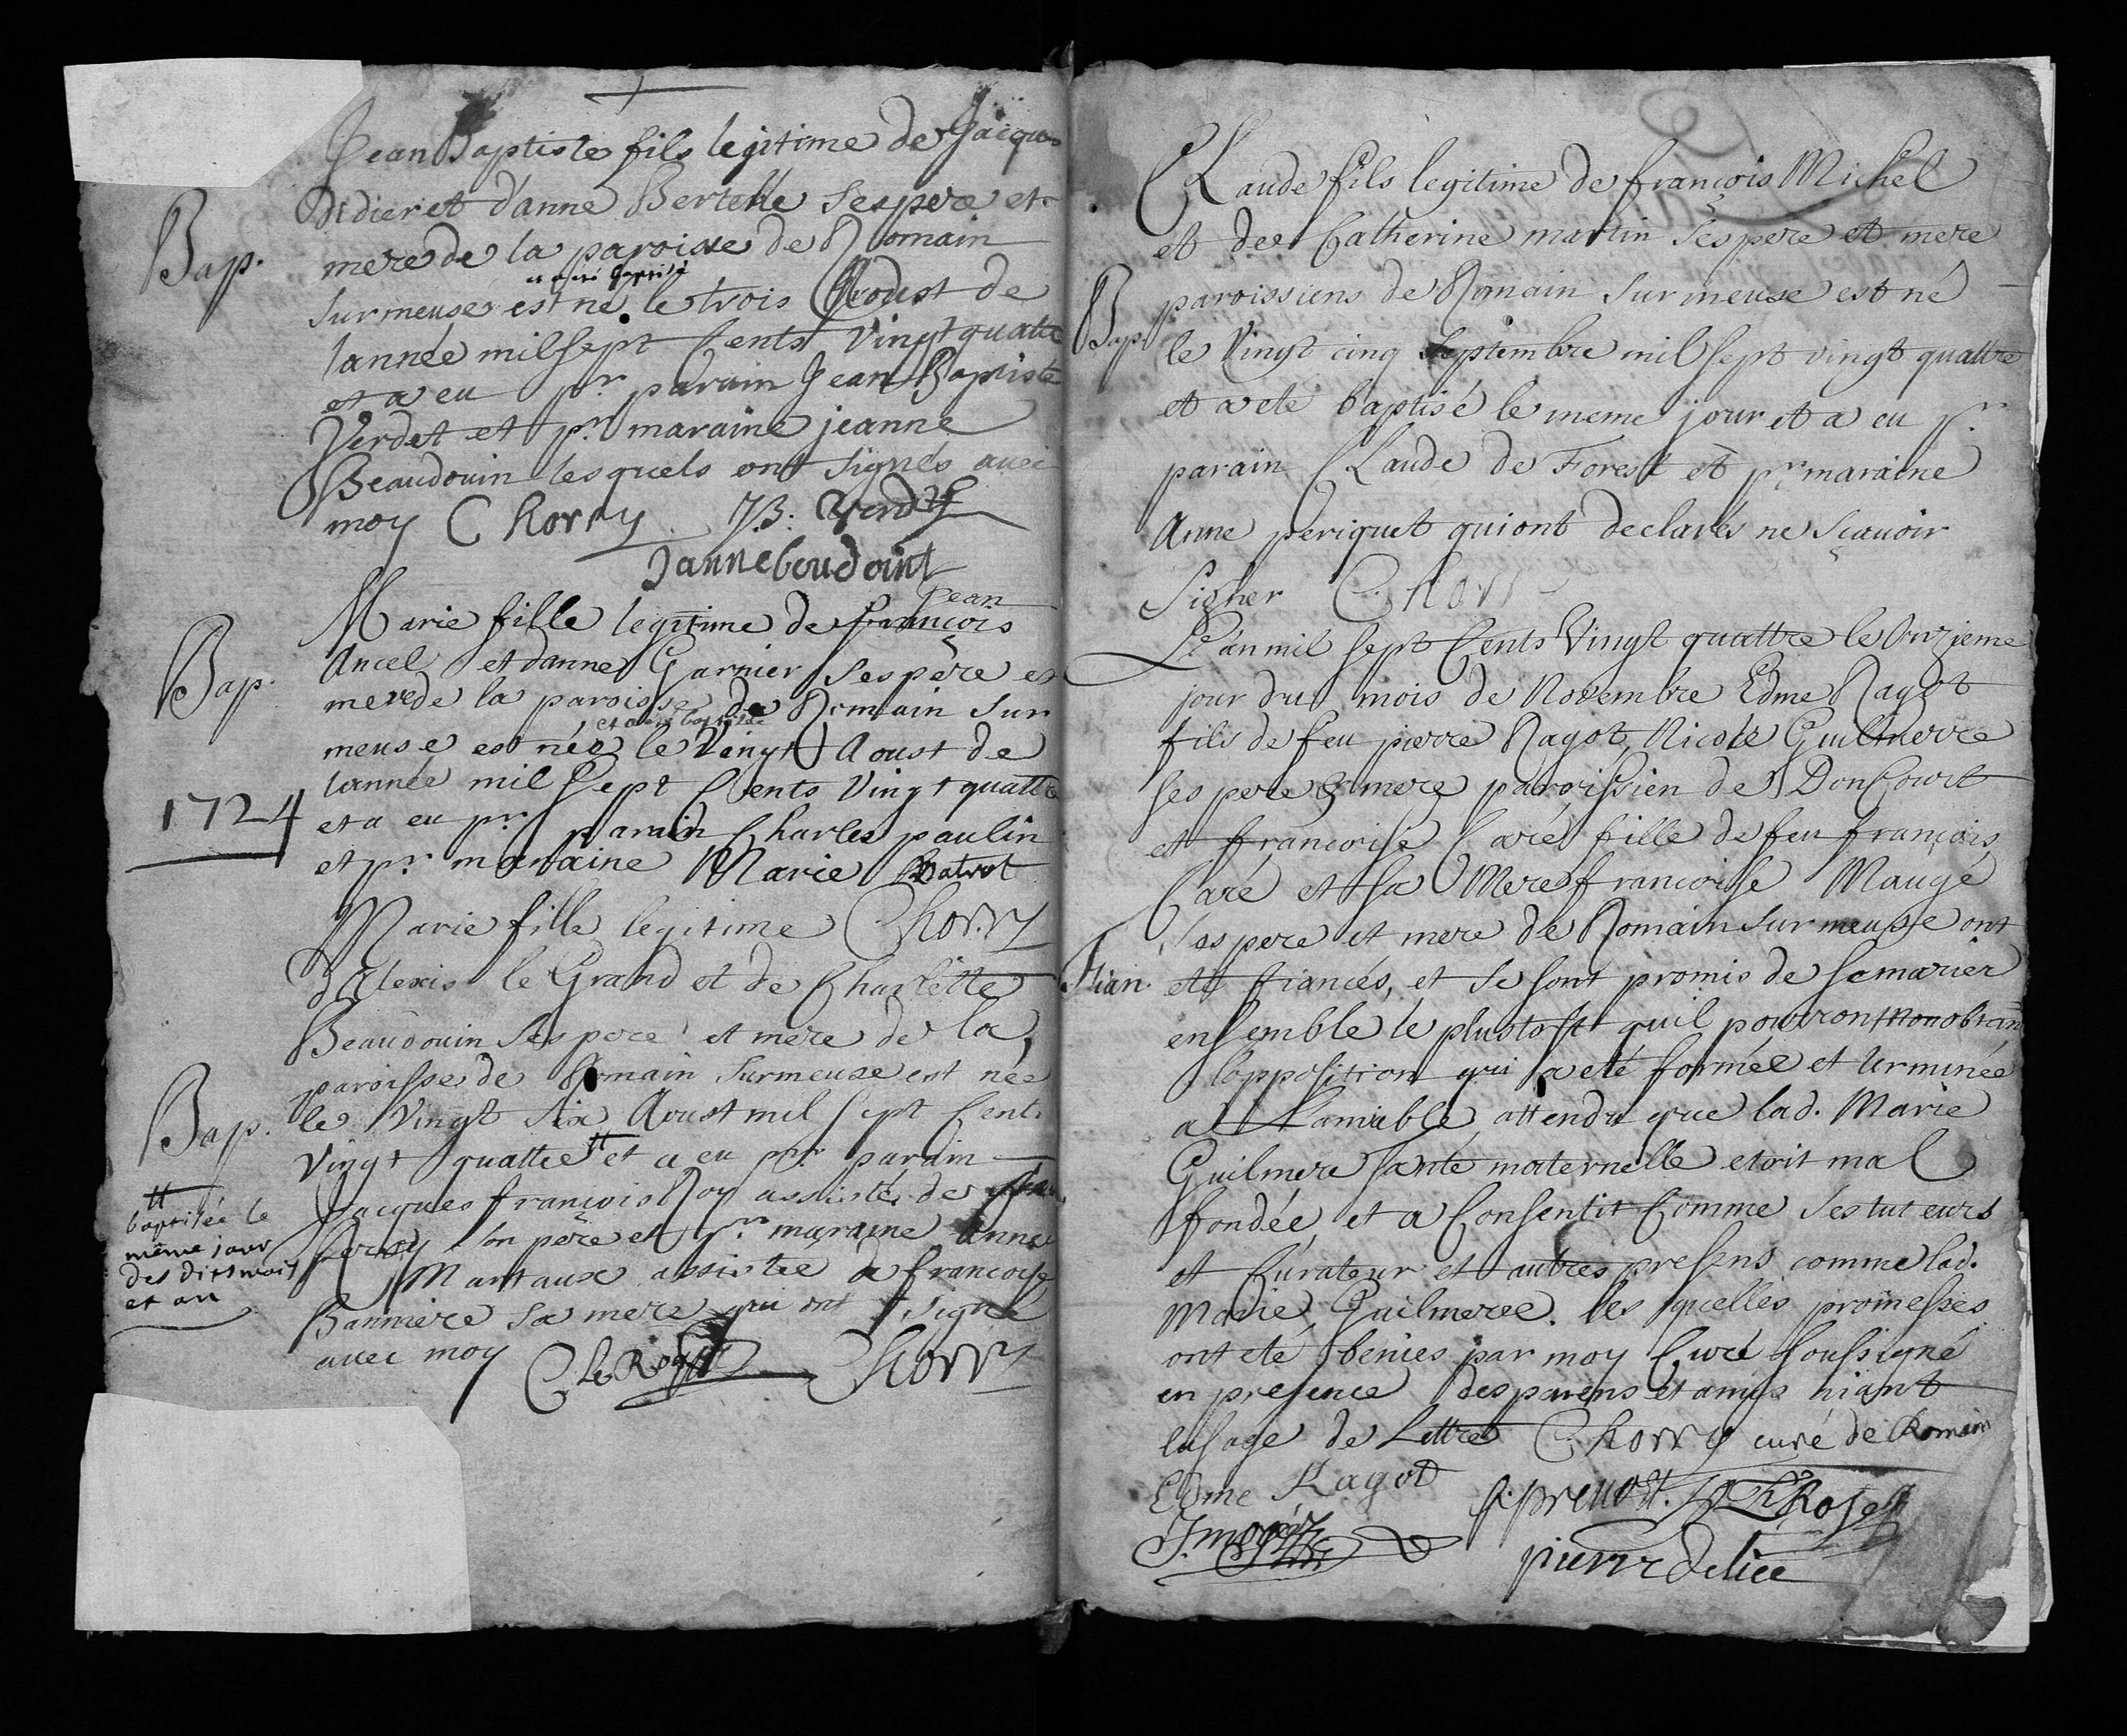 Jean Baptiste fils legitime de Jacques
Bap.
Didier et d'anne Bertelle ses pere et
mere de la paroisse de Romain
et a été baptisé
sur meuse est né le trois Aoust de
lannée mil sept Cents Vingt quattre
et a eu pr. parain Jean Baptiste
Verdet et pr. maraine jeanne
Beaudouin lesquels ont signés avec
moy C Thorry J.B. Verdet
Janne boudoint
Jean
Bap.
Marie fille legitime de françois
Ancel et danne Garnier ses pere et
mere de la paroisse de Romain sur
et a été baptisée
meuse est née le Vingt Aoust de
1724
lannée mil sept Cents Vingt quattre
et a eu pr. parain Charles paulin
et pr. maraine Marie
Marie fille legitime Chorry
d'Alexis le Grand et de Charlette
Beaudouin ses pere et mere de la
paroisse de Romain sur meuse est née
Bap.
le Vingt six Aoust mil sept Cent
vingt quattre # et a eu pr. parain
Jacques françois Roy assisté de
son père et pr. maraine Anne
Martaux assistée de francoise
Banniere sa mere qui ont signé
avec moy C. Chorry
#
baptisée le
même jour
des dits mois
et an
Claude fils legitime de françois Michel
et de Catherine martin ses pere et mere
Bap.
paroissiens de Romain sur meuse est né
le Vingt cinq septembre mil sept vingt quattre
et a eté baptisé le meme jour et a eu pr.
parain Claude de Forest et pr. maraine
Anne periquet qui ont declarés ne sçauoir
Signer C. Chorr
Lé an mil sept Cents Vingt quattre le onzieme
jour du mois de Novembre Edme Ragot
fils de feu pierre Ragot, Nicole Guilmerre
ses pere & mere paroissien de DonCourt
et francoise Caré fille de feu françois
Caré et sa Mere francoise Maugé
ses pere et mere de Romain sur meuse ont
Fian.
eté fiancés, et se sont promis de se marier
ensemble le plustost quil pouront nonobstan
lopposition qui a eté formée et terminée
a Lamiable attendu que lad. Marie
Guilmere tante maternelle etoit mal
fondée, et a Consentit Comme ses tuteurs
et Curateur et autres presens comme lad.
Marie Guilmeree. les quelles promesses
ont eté benies par moy Curé soussigné
en presence des parens et amys niant
lusage de Lettre Chorry curé de Romain
Edme Ragot p. prevost. Rose
pierre delice